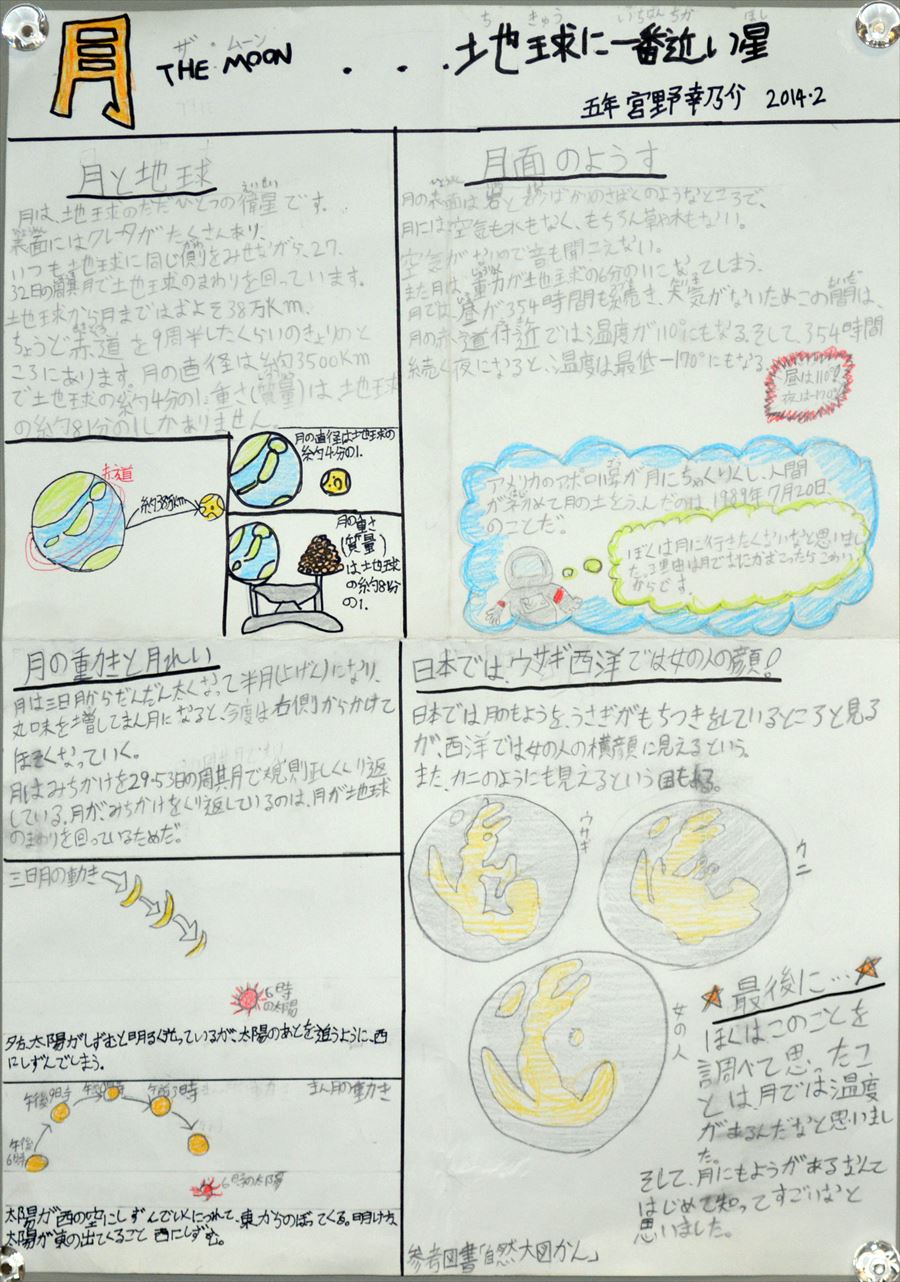 月 THE MOON ....地球に一番近い星
ザ・ムーン
ち きゅう いちばんちか ほし
五年 宮野幸乃介 2014.2
月と地球
月は、地球のただひとつの衛星です。
えいせい
表面にはクレータがたくさんあり、
いつも地球に同じ側をみせながら、27.
32日の周期で土地球のまわりを回っています。
地球から月まではおよそ38万Km、
ちょうど赤道を9周半したくらいのきょりのと
ころにあります。月の直径は約3500Km
で土地球の約4分の1、重さ(質量)は、地球
の約81分の1しかありません。
赤道
約38万km
月の直径は地球の
約4分の1.
月の重さ
(質量)
は土地球
の約81分
の1.
月面のようす
月の表面は岩と砂ばかりのさばくのようなところで、
月には空気も水もなく、もちろん草や木もない。
空気がないので音も聞こえない。
また月は、重力が土地球の6分の1になってしまう。
月では、昼が354時間も続き、空気がないためこの間は、
月の赤道付近では温度が110°にもなる。そして、354時間
続く夜になると、温度は最低-170°にもなる。
昼は110°!
夜は-170°!
アメリカのアポロ11号が月にちゃくりくし、人間
がはじめて月の土をふんだのは、1989年7月20日、
のことだ。
ぼくは月に行きたくないなと思いまし
た。理由は月で
からです。
月の動きと月れい
月は三日月からだんだん太くなって半月(上げん)になり、
丸味を増してまん月になると、今度は右側からかけて
ほそくなっていく。
月はみちかけを29.53日の周期で規則正しくくり返
している。月がみちかけをくり返しているのは、月が地球
のまわりを回っているためだ。
三日月の動き
6時
の太陽
夕方、太陽がしずむと明るく光っているが、太陽のあとを追うように、西
にしずんでしまう。
まん月の動き
午後9時
午前0時
午前3時
午後
6時
6時の太陽
太陽が西の空にしずんでいくにつれて、東からのぼってくる。明け方
太陽が東の出てくるごと 西にしずむ。
日本では、ウサギ西洋では女の人の顔!
日本では月のもようを、うさぎがもちつきをしているところと見る
が、西洋では女の人の横顔に見えるという。
また、カニのようにも見えるという国もある。
ウサギ
カニ
女の人
最後に…
ぼくはこのことを
調べて思ったこ
とは月では温度
があるんだなと思いまし
た。
そして、月にもようがあるなんて
はじめて知ってすごいなと
思いました。
参考図書「自然大図かん」